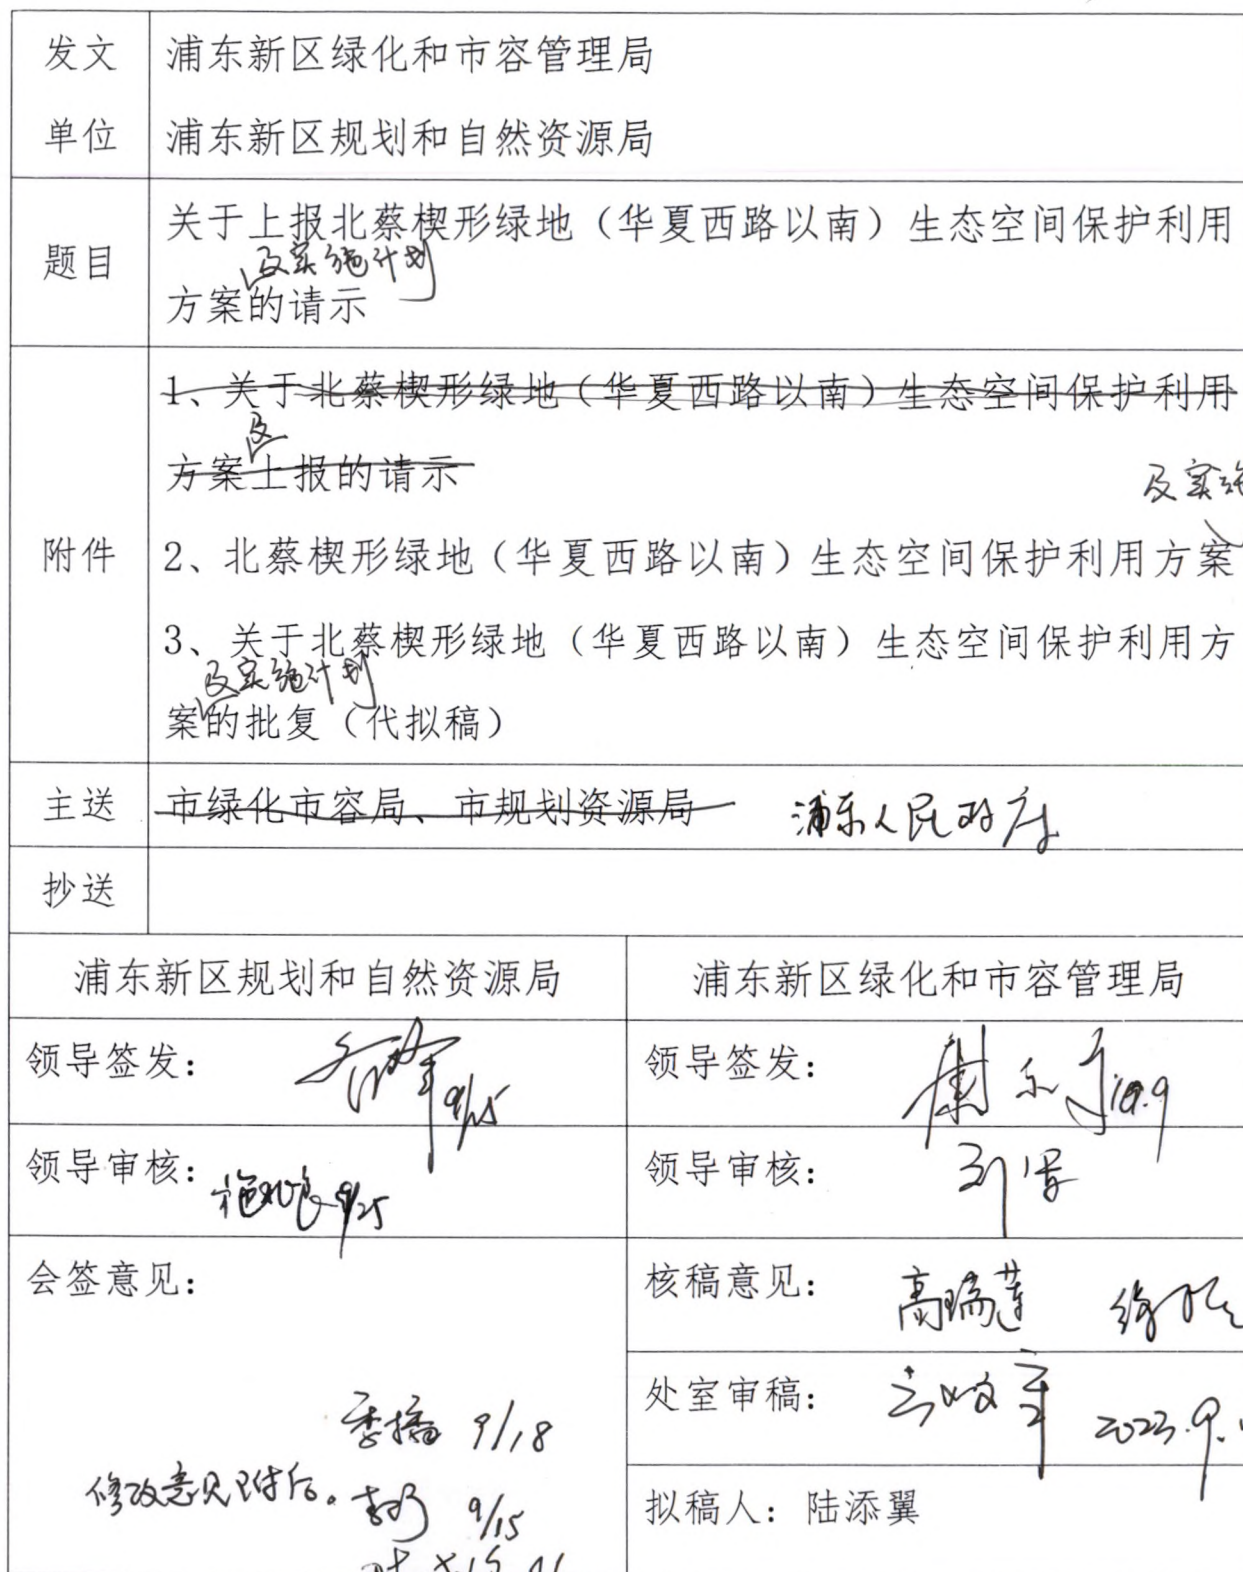 发文 浦东新区绿化和市容管理局
单位 浦东新区规划和自然资源局
关于上报北蔡楔形绿地（华夏西路以南）生态空间保护利用
及实施计划
题目
方案的请示
1、关于北蔡楔形绿地（华夏西路以南）生态空间保护利用
及
方案上报的请示
及实施
附件 2、北蔡楔形绿地（华夏西路以南）生态空间保护利用方案
3、关于北蔡楔形绿地（华夏西路以南）生态空间保护利用方
及实施计划
案的批复（代拟稿）
主送 市绿化市容局、市规划资源局 浦东人民政府
抄送
浦东新区规划和自然资源局 浦东新区绿化和市容管理局
领导签发： 9/25 领导签发： 10.9
领导审核： 9/25 领导审核： 刘军
会签意见： 核稿意见： 高瑞莲
处室审稿： 2023.9.
9/18
修改意见附后。 9/15
拟稿人：陆添翼